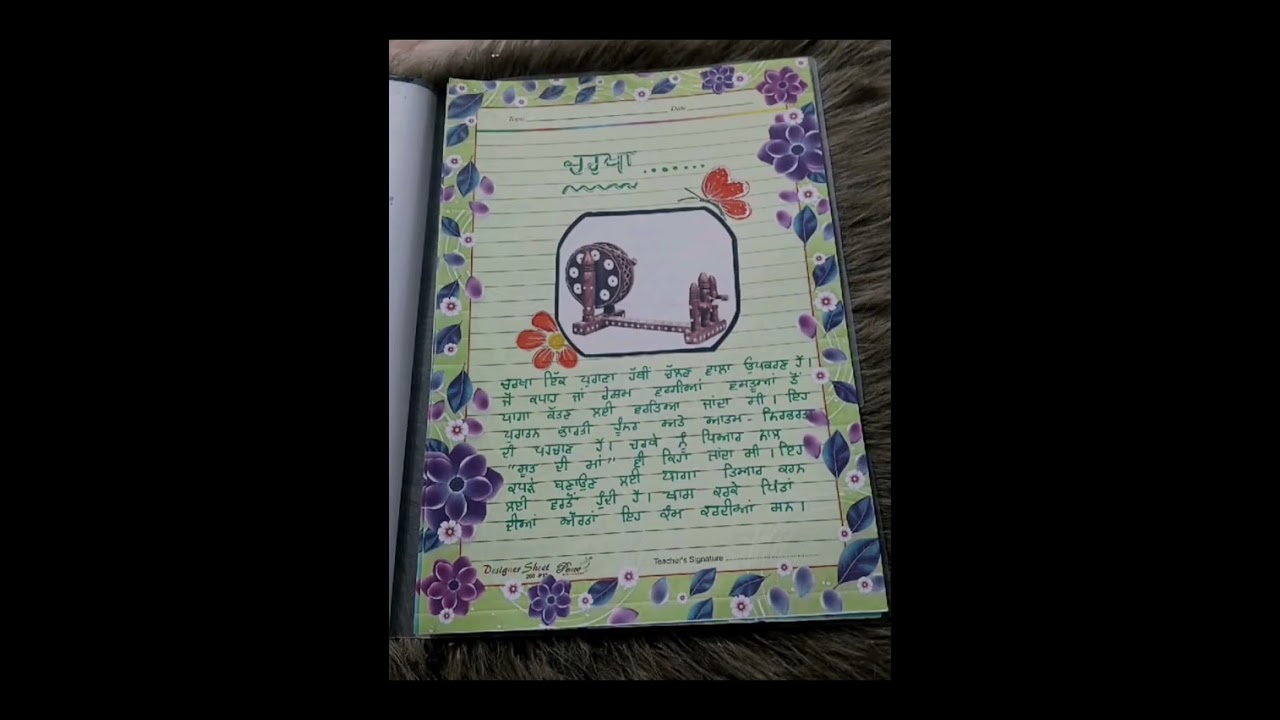 Date
ਚਰਖਾ .......
ਚਰਖਾ ਇੱਕ ਪੁਰਾਣਾ ਹੱਥੀਂ ਚੱਲਣ ਵਾਲਾ ਉਪਕਰਣ ਹੈ।
ਜੋ ਕਪਾਹ ਜਾਂ ਰੇਸ਼ਮ ਵਰਗੀਆਂ ਵਸਤੂਆਂ ਤੋਂ
ਧਾਗਾ ਕੱਤਣ ਲਈ ਵਰਤਿਆ ਜਾਂਦਾ ਸੀ। ਇਹ
ਪੁਰਾਤਨ ਭਾਰਤੀ ਹੁੰਨਰ ਅਤੇ ਆਤਮ-ਨਿਰਭਰਤਾ
ਦੀ ਪਹਚਾਣ ਹੈ। ਚਰਖੇ ਨੂੰ ਪਿਆਰ ਨਾਲ
"ਸੂਤ ਦੀ ਮਾਂ" ਵੀ ਕਿਹਾ ਜਾਂਦਾ ਸੀ। ਇਹ
ਕਪੜੇ ਬਣਾਉਣ ਲਈ ਧਾਗਾ ਤਿਆਰ ਕਰਨ
ਲਈ ਵਰਤੋਂ ਹੁੰਦੀ ਹੈ। ਖਾਸ ਕਰਕੇ ਪਿੰਡਾਂ
ਦੀਆਂ ਔਰਤਾਂ ਇਹ ਕੰਮ ਕਰਦੀਆਂ ਸਨ।
Designer Sheet
Teacher's Signature